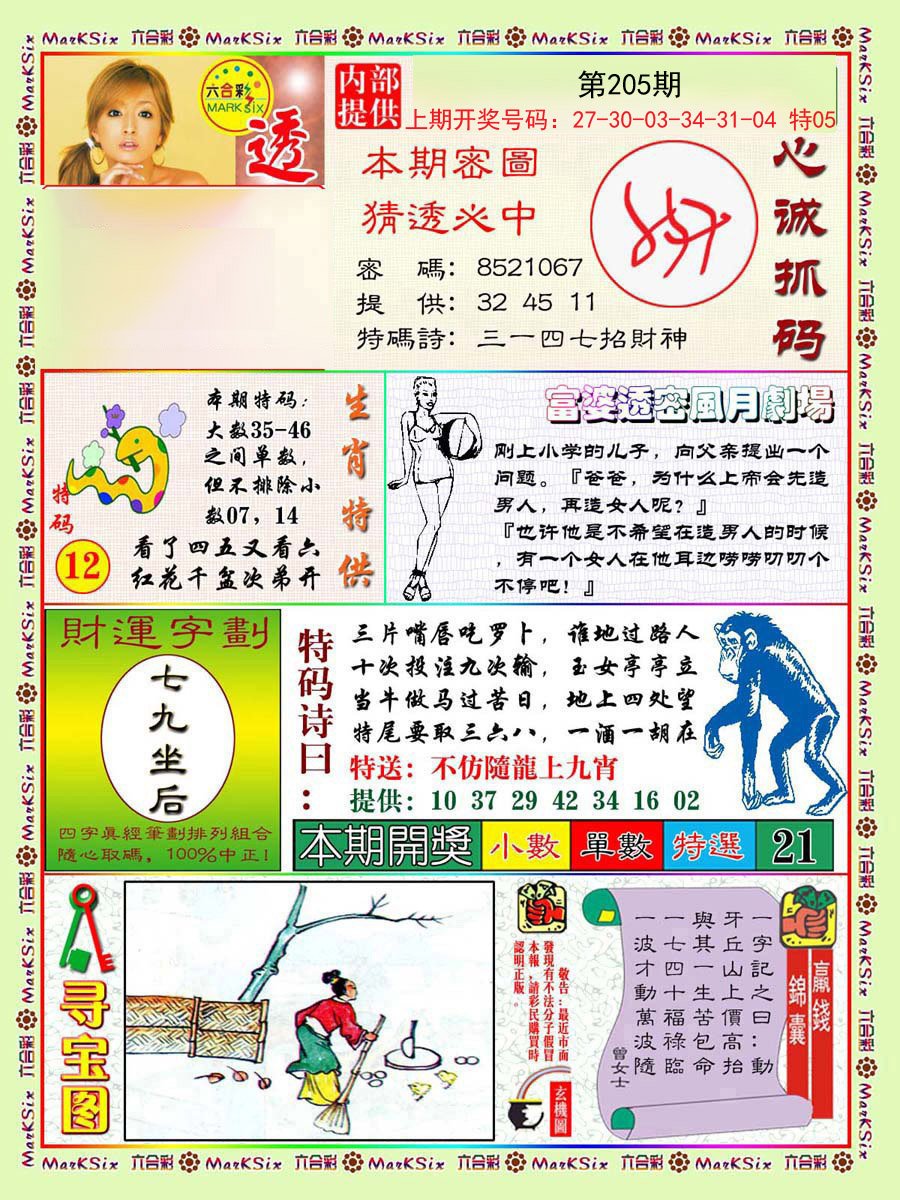 MarKSix 六合彩 MarKSix 六合彩 MarKSix 六合彩 MarKSix 六合彩 MarKSix 六合彩
六合彩
MARK SIX
透
内部
提供
第205期
上期开奖号码：27-30-03-34-31-04 特05
本期密圖
猜透必中
密　碼：8521067
提　供：32 45 11
特碼詩：三一四七招財神
心诚抓码
特码
12
本期特码：
大数35-46
之间单数，
但不排除小
数07，14
看了四五又看六
红花千盆次弟开
生肖特供
富婆透密風月劇場
刚上小学的儿子，向父亲提出一个
问题。『爸爸，为什么上帝会先造
男人，再造女人呢？』
『也许他是不希望在造男人的时候
，有一个女人在他耳边唠唠叨叨个
不停吧！』
財運字劃
七九坐后
四字真經筆劃排列組合
隨心取碼，100%中正！
特码诗曰：
三片嘴唇吃罗卜，谁地过路人
十次投注九次输，玉女亭亭立
当牛做马过苦日，地上四处望
特尾要取三六八，一酒一胡在
特送：不仿隨龍上九宵
提供：10 37 29 42 34 16 02
本期開獎 小數 單數 特選 21
寻宝图
敬告：最近市面
發現有不法分子假冒
本報，請彩民購買時
認明正版。
玄機圖
贏錢
錦囊
一字記之曰：動
牙丘山上價高抬
與其一生苦包命
一七四十福祿臨
一波才動萬波隨
曾女士
MarKSix 六合彩 MarKSix 六合彩 MarKSix 六合彩 MarKSix 六合彩 MarKSix 六合彩